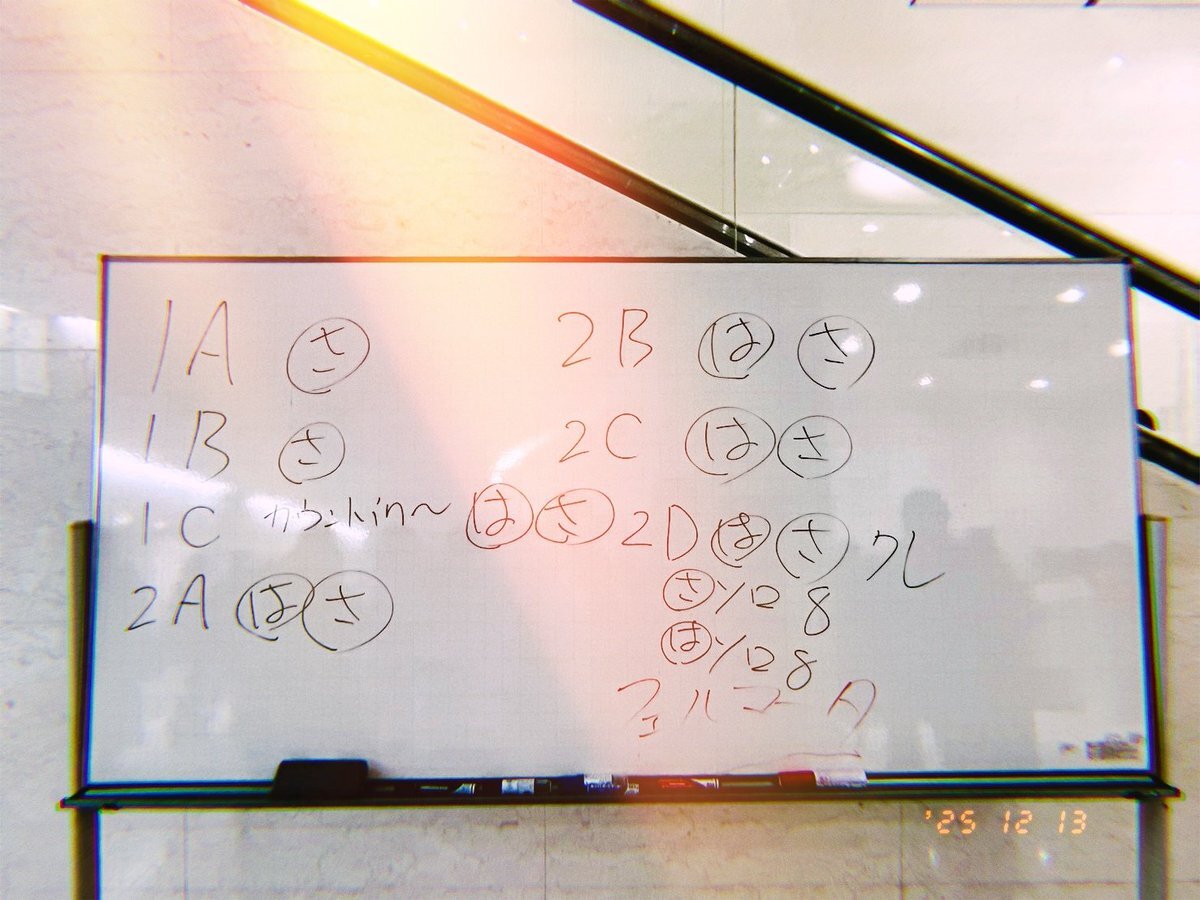 1A ㋚さ
1B さ
1C カウントin〜 は さ
2A は さ
2B は さ
2C は さ
2D は さ クレ
さ ソロ 8
は ソロ 8
フェルマータ
'25 12 13